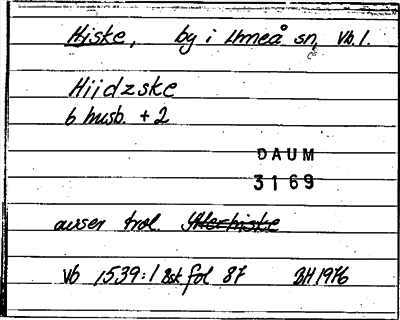 Hiske, by i Umeå sn, Vb. l.
Hiidzske
6 husb. + 2
DAUM
3169
avser trol. Ytterhiske
Vb 1539:1 Bsk fol 87 BH 1976